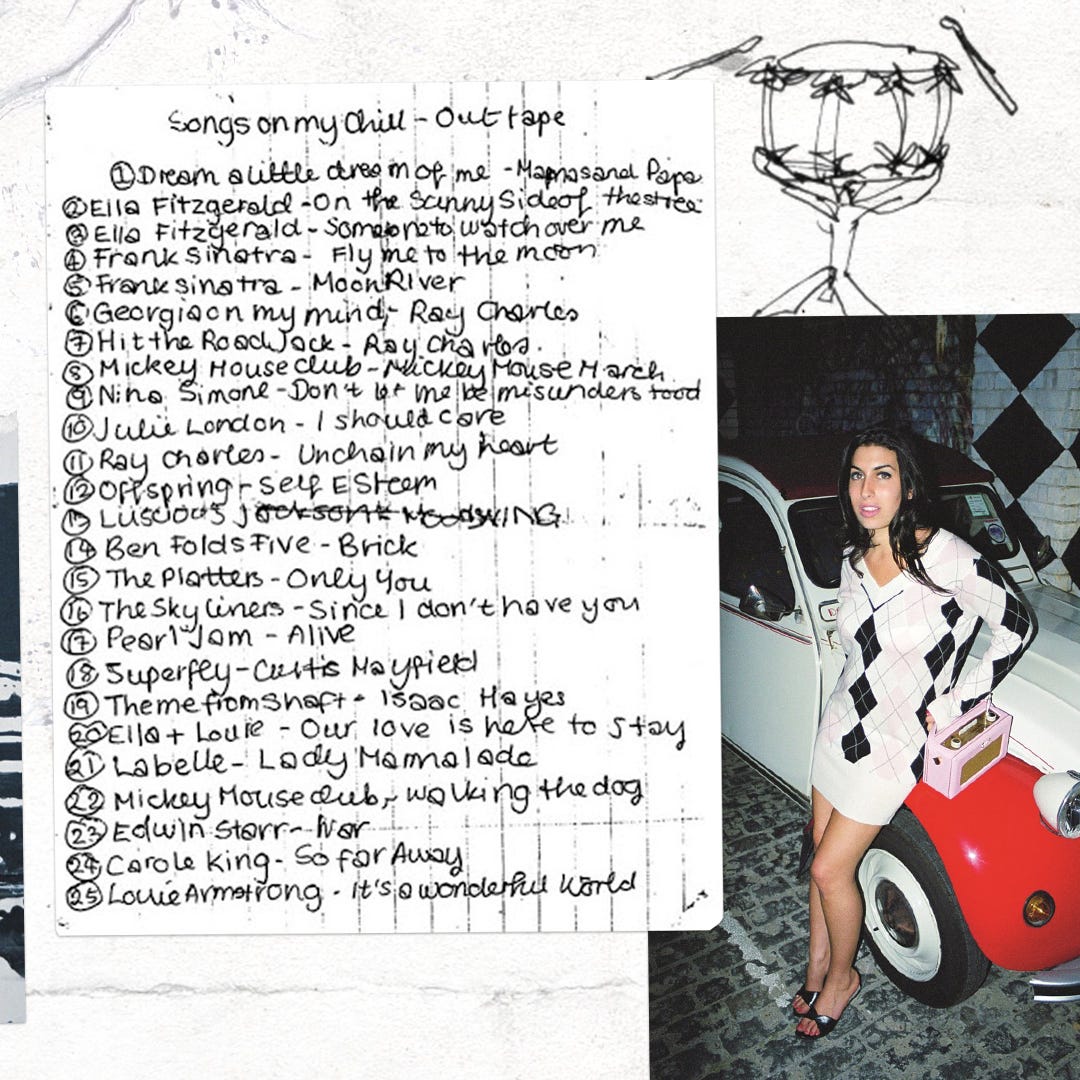 Songs on my Chill - Out tape
① Dream a little dream of me - Mamas and Papa
② Ella Fitzgerald - On the Sunny Side of the stree
③ Ella Fitzgerald - Someone to watch over me
④ Frank Sinatra - Fly me to the moon
⑤ Frank sinatra - Moon River
⑥ Georgia on my mind - Ray Charles
⑦ Hit the Road Jack - Ray Charles.
⑧ Mickey House club - Mickey Mouse March
⑨ Nina Simone - Don't let me be misunderstood
⑩ Julie London - I should care
⑪ Ray Charles - Unchain my heart
⑫ Offspring - Self Esteem
⑬ Luscious Jackson - MoodswING
⑭ Ben Folds Five - Brick
⑮ The Platters - Only You
⑯ The Sky liners - Since I don't have you
⑰ Pearl Jam - Alive
⑱ Superfly - Curtis Mayfield
⑲ Theme from Shaft - Isaac Hayes
⑳ Ella + Louie - Our love is here to stay
㉑ Labelle - Lady Marmalade
㉒ Mickey Mouse club, - walking the dog
㉓ Edwin Starr - War
㉔ Carole King - So far Away
㉕ Louie Armstrong - It's a wonderful World